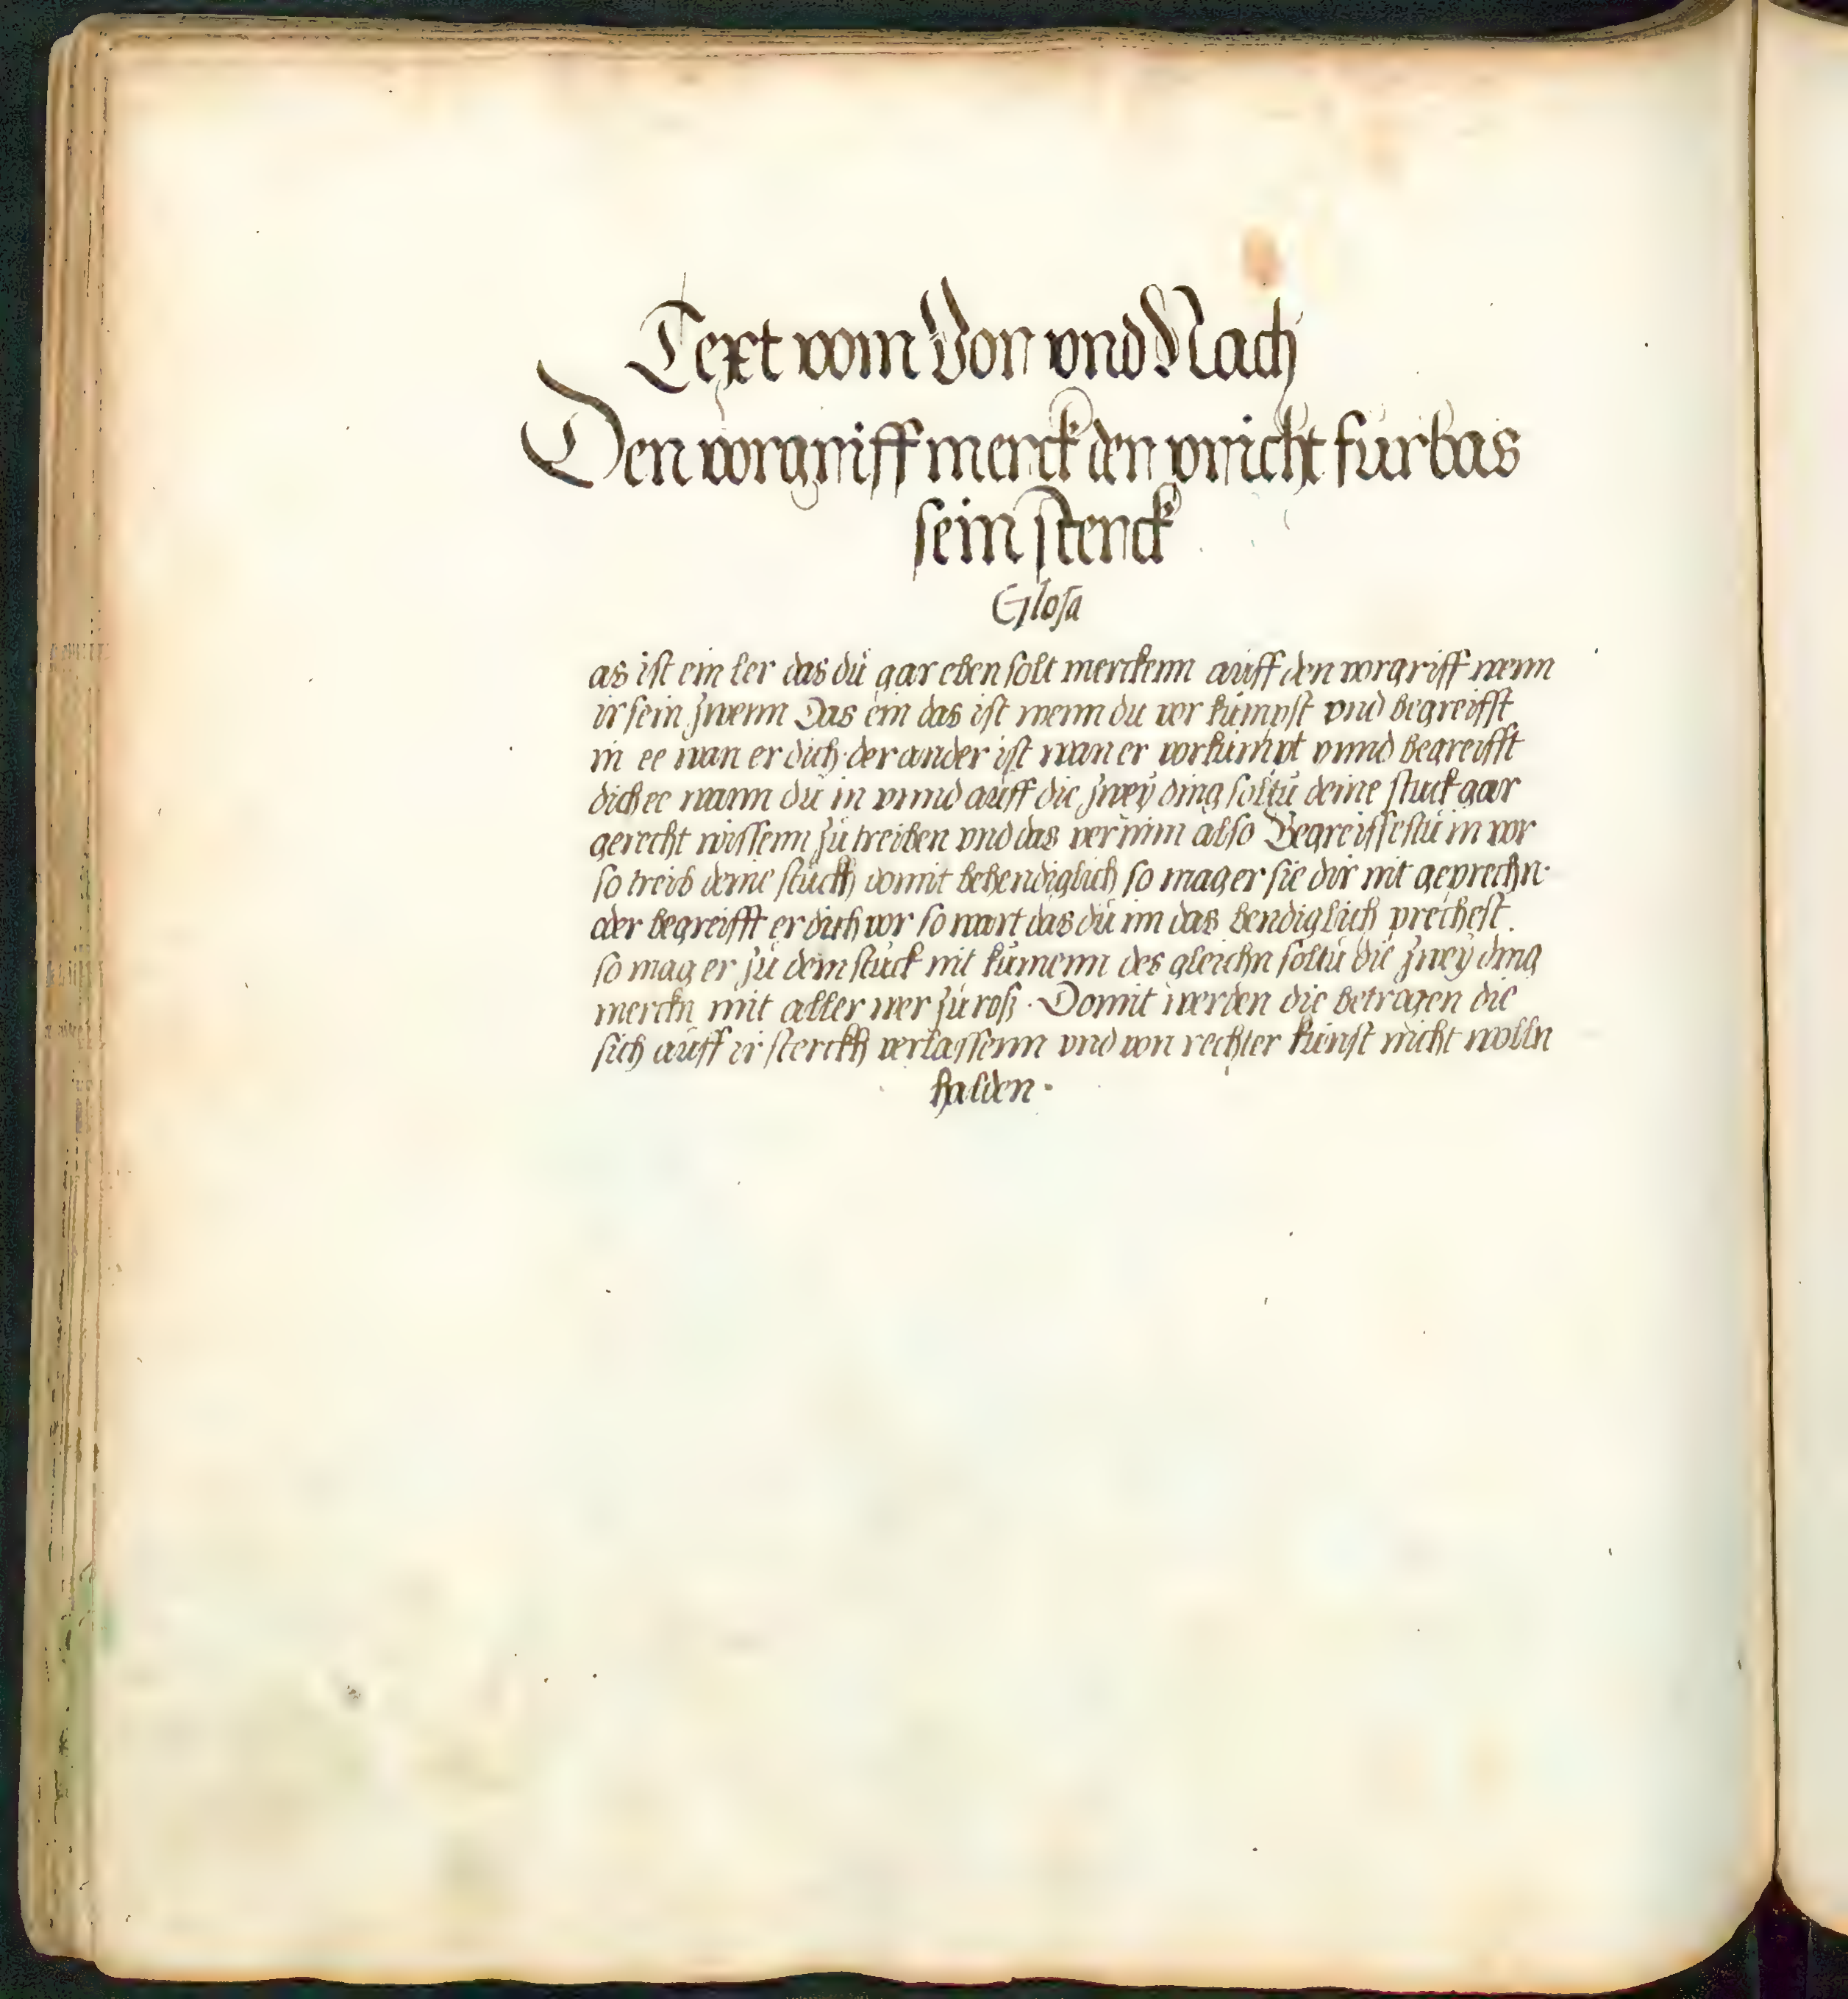 Text vom Vor vnd Nach
Den vorgriff merck den pricht furbas
sein sterck
Glosa
as ist ein ler das dü gar eben solt merckenn aüff den vorgriff wenn
ir sein zwenn Das ein das ist wenn du vor kumpst vnd begreifft
in ee wan er dich · der ander ist wan er vorkümpt vnnd begreifft
dich ee wann dü in vnnd aüff die zwey ding soltü deine stuck gar
gerecht wissenn zü treiben vnd das vernim also Begreiffestü in vor
so treib deine stückh domit behendiglich so mag er sie dir nit geprechn ·
oder begreifft er dich vor so wart das dü im das bendiglich prechest .
so mag er zü dem stuck nit kümenn des gleichn soltü die zwey ding
merckn mit aller wer zü roß · Domit werden die betrogen die
sich aüff ir sterckh verlassenn vnd von rechter künst nicht wolln
halden ·